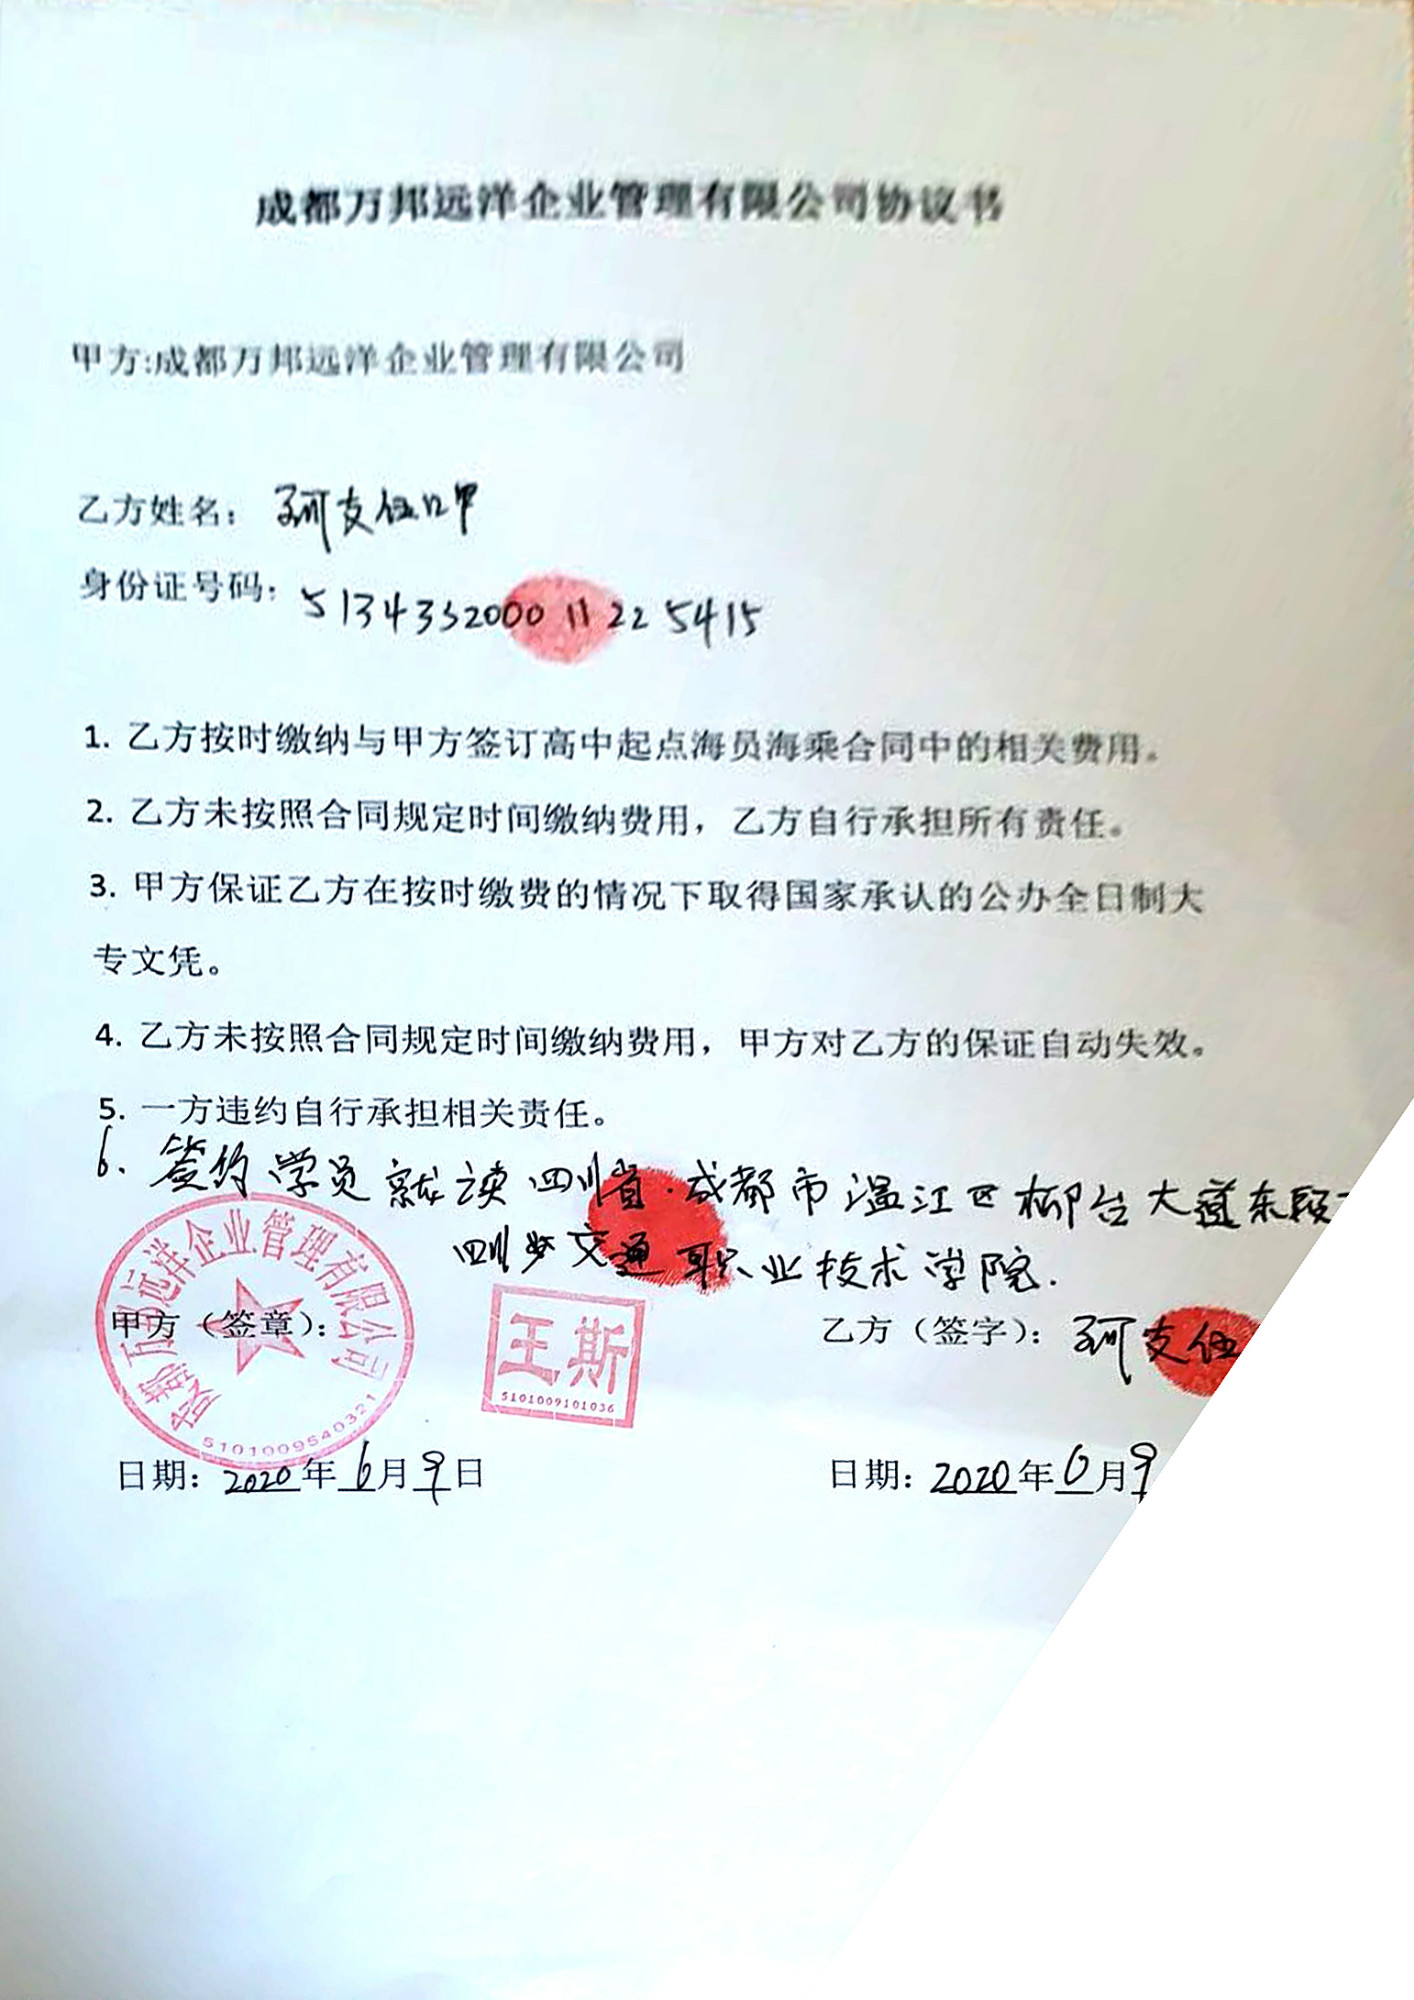 成都万邦远洋企业管理有限公司协议书
甲方:成都万邦远洋企业管理有限公司
乙方姓名: 阿支伍呷
身份证号码: 513433200011225415
1. 乙方按时缴纳与甲方签订高中起点海员海乘合同中的相关费用。
2. 乙方未按照合同规定时间缴纳费用，乙方自行承担所有责任。
3. 甲方保证乙方在按时缴费的情况下取得国家承认的公办全日制大
专文凭。
4. 乙方未按照合同规定时间缴纳费用，甲方对乙方的保证自动失效。
5. 一方违约自行承担相关责任。
6. 签约学员就读四川省·成都市温江区柳台大道东段
四川 交通职业技术学院.
甲方（签章）:
成都万邦远洋企业管理有限公司
5101009540321
王斯
5101009101036
乙方（签字）: 阿支伍
日期: 2020年6月9日
日期: 2020年6月9